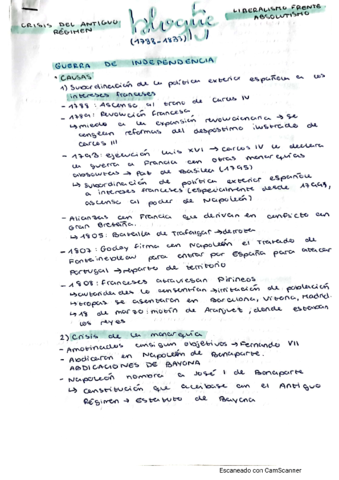 CRISIS DEL ANTIGUO RÉGIMEN
bloque
(1788-1833)
LIBERALISMO FRENTE ABSOLUTISMO
GUERRA DE INDEPENDENCIA
* CAUSAS
1) Subordinación de la política exterior española a los
intereses franceses
- 1788: Ascenso al trono de Carlos IV
- 1789: Revolución francesa
↳ miedo a la expansión revolucionaria → se
congelan reformas del despotismo ilustrado de
Carlos III
↳ 1793: ejecución Luis XVI → Carlos IV le declara
la guerra a Francia con otras monarquías
absolutas → Paz de Basilea (1795)
↳ subordinación de política exterior española
a intereses franceses (especialmente desde 1799,
ascenso al poder de Napoleón)
- Alianzas con Francia que derivan en conflicto con
Gran Bretaña.
↳ 1805: Batalla de Trafalgar → derrota
- 1807: Godoy firma con Napoleón el Tratado de
Fontainebleau para entrar por España para atacar
Portugal → reparto de territorio
- 1808: Franceses atraviesan Pirineos
↳ autoridades lo consentían → irritación de población
↳ tropas se asentaron en Barcelona, Vitoria, Madrid.
↳ 18 de marzo: motín de Aranjuez, donde estaban
los reyes
2) Crisis de la monarquía
- Amotinados consiguen objetivos → Fernando VII
- Abdicaron en Napoleón de Bonaparte.
ABDICACIONES DE BAYONA
- Napoleón nombra a José I de Bonaparte
↳ constitución que acabase con el Antiguo
Régimen → Estatuto de Bayona
Escaneado con CamScanner